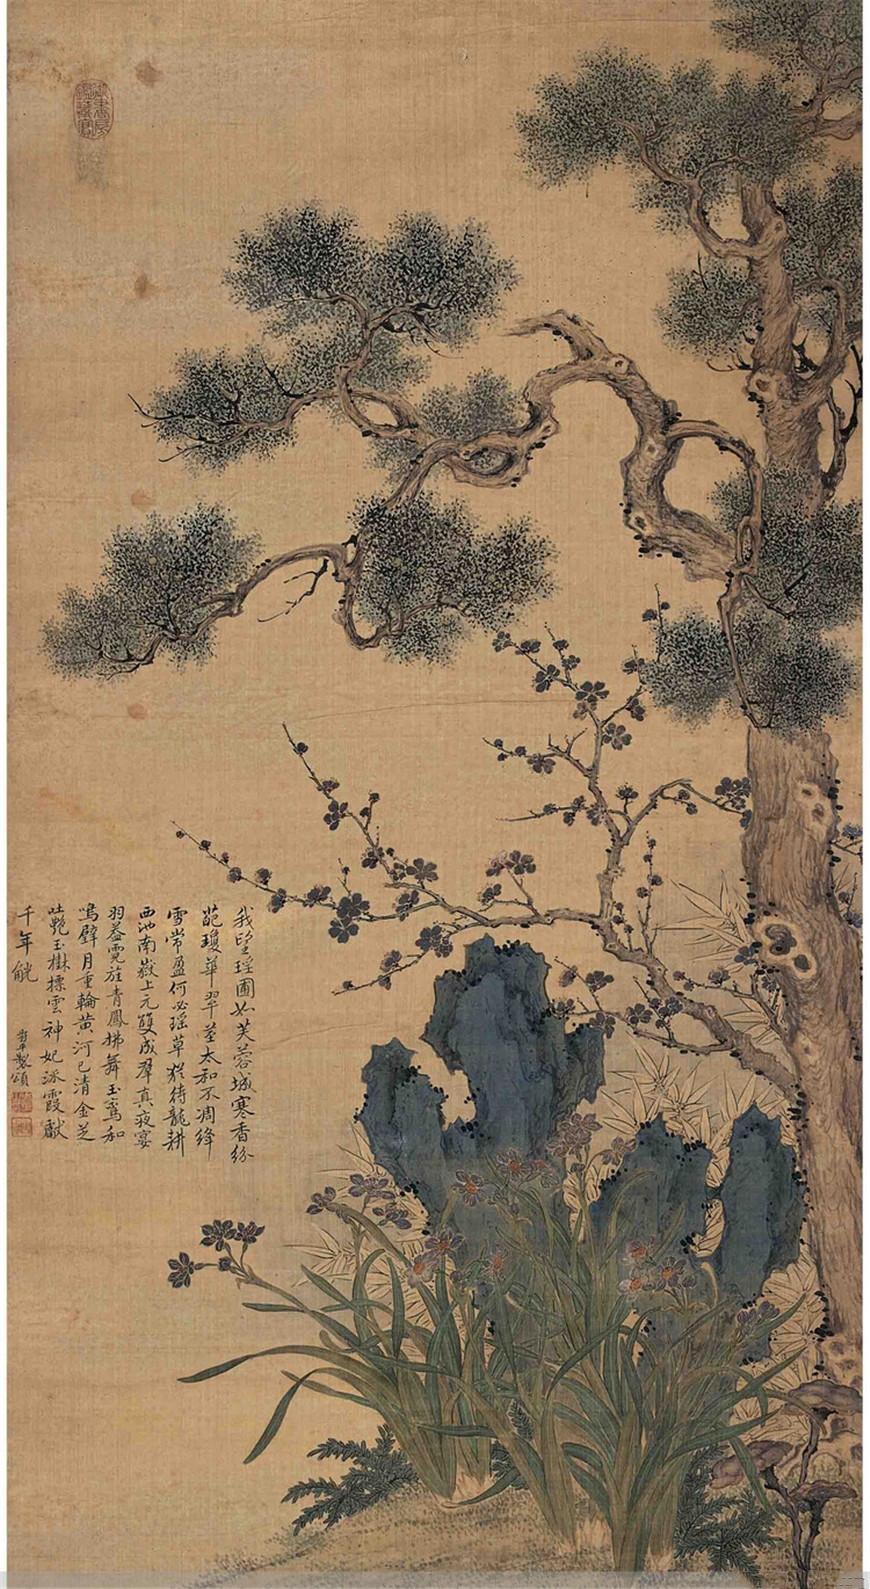 我望瑤圃如芙蓉城寒香紛
葩瓊華翠莖太和不凋絳
雪常盈何必瑤草猶待龍耕
西池南嶽上元雙成群真夜宴
羽蓋霓旌青鳳拂舞玉鸞和
鳴璧月重輪黃河已清金芝
吐艷玉樹標雲神妃添霞獻
千年觥
製頌